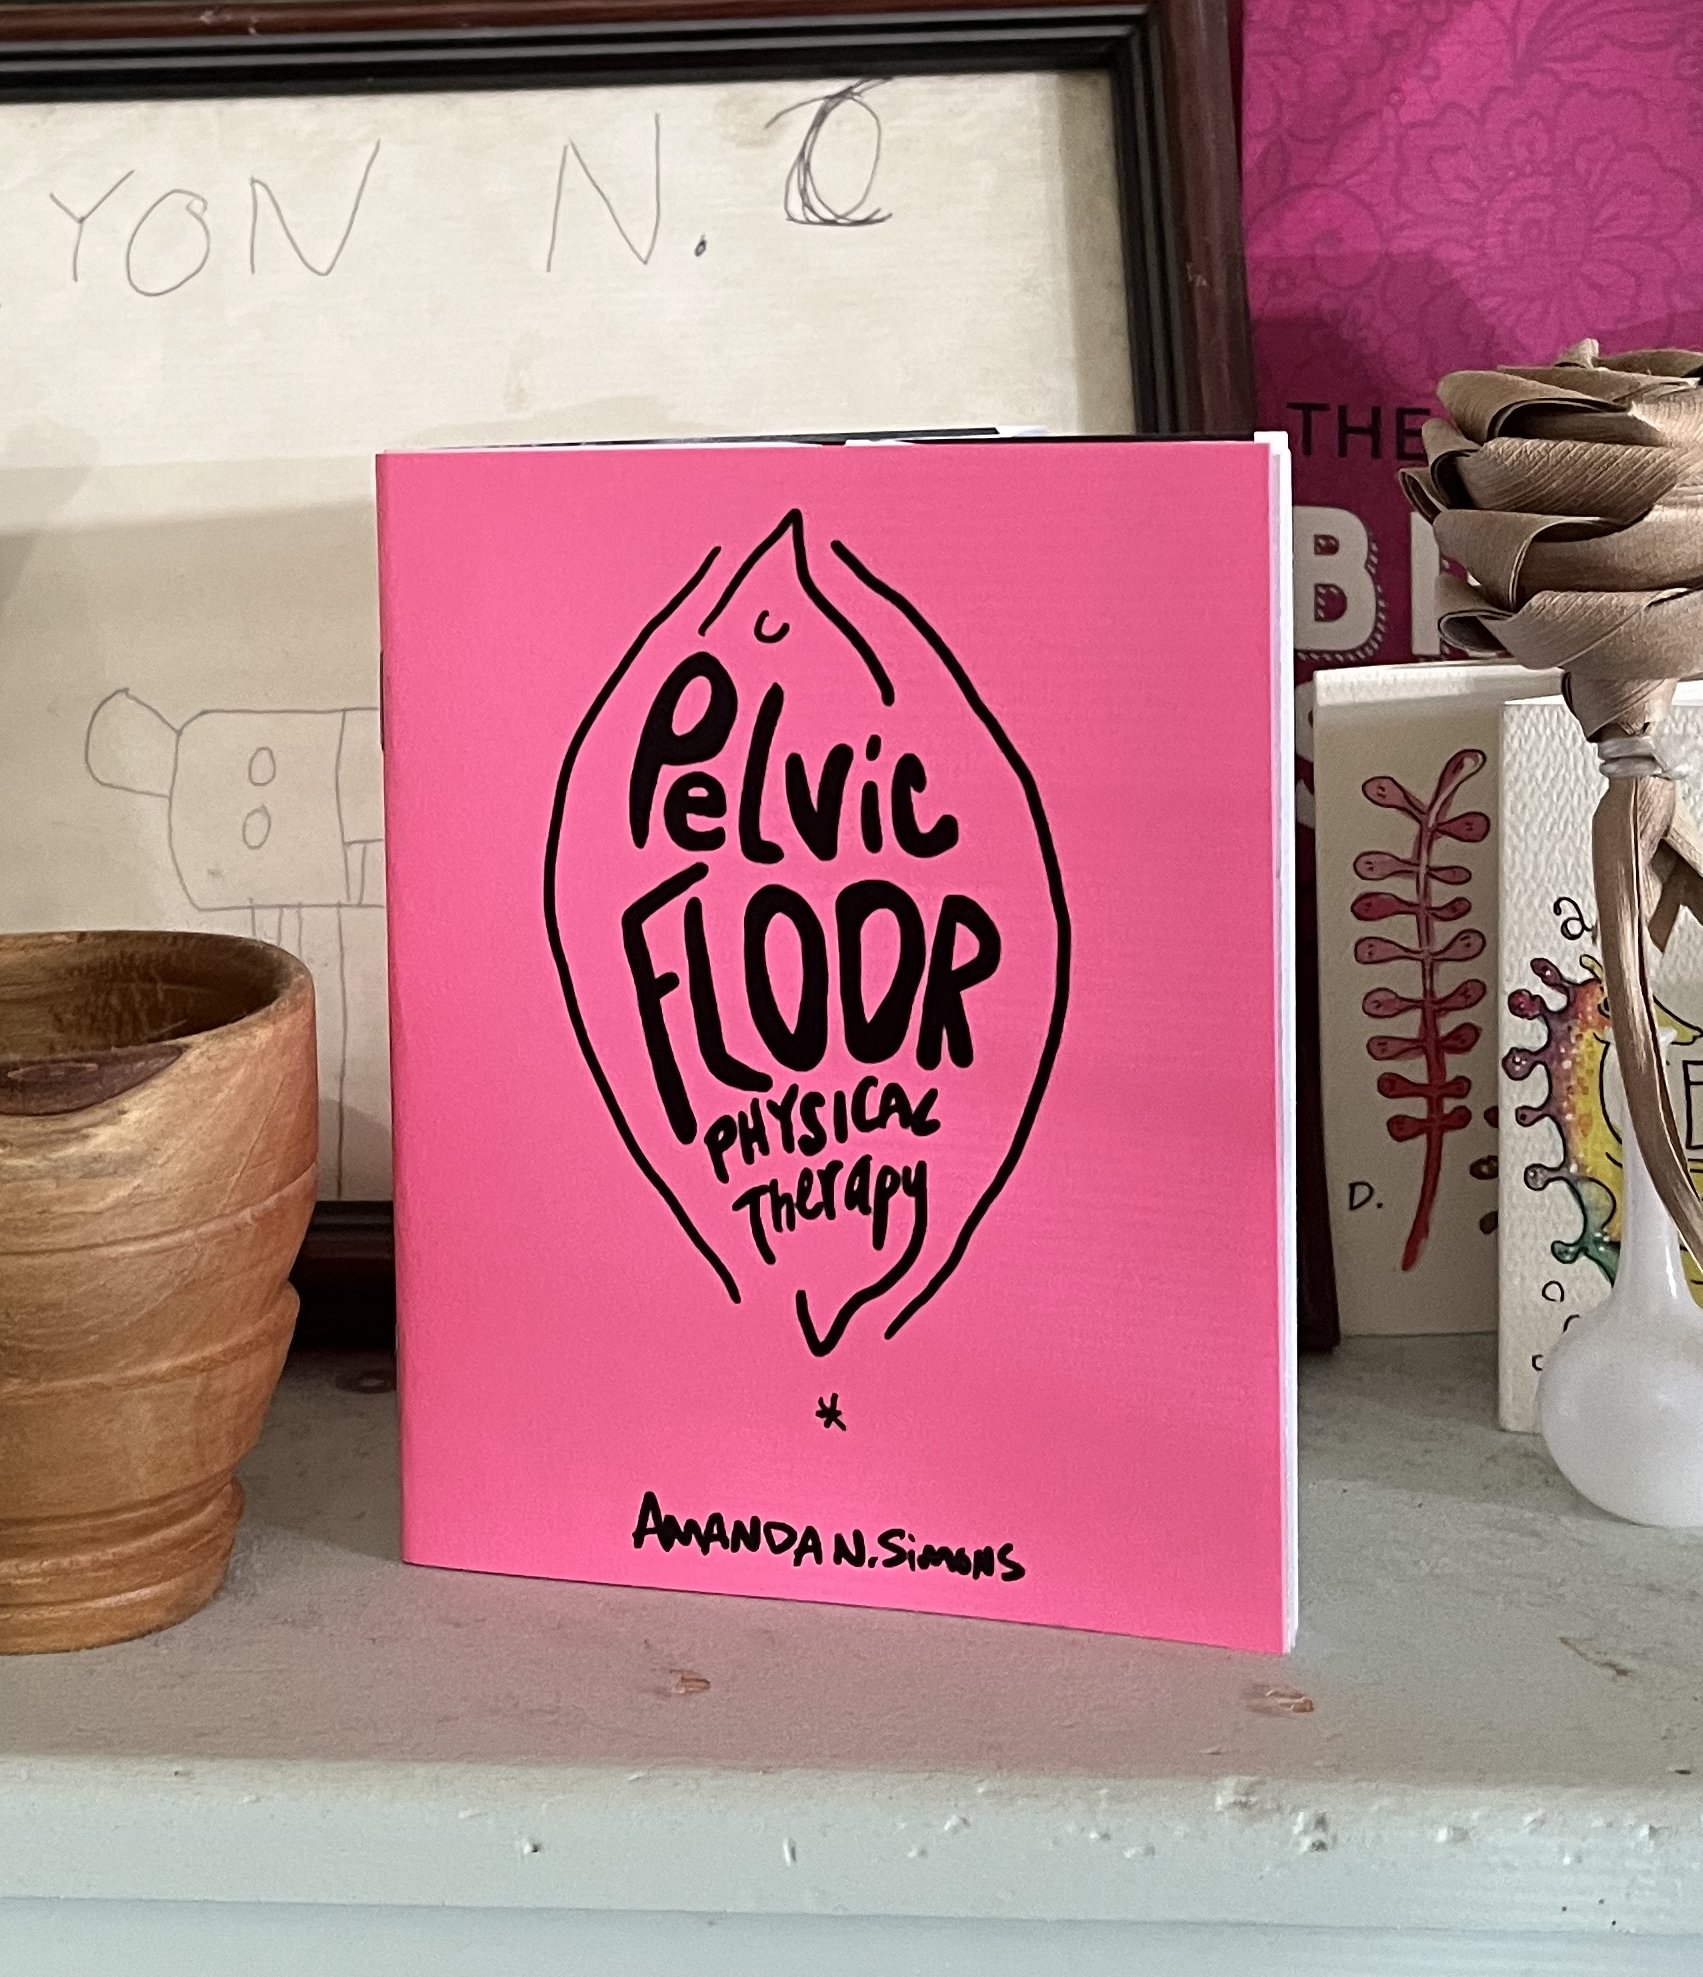 YON N.
THE
Pelvic
FLOOR
PHYSICAL
Therapy
D.
a
AMANDA N. Simons